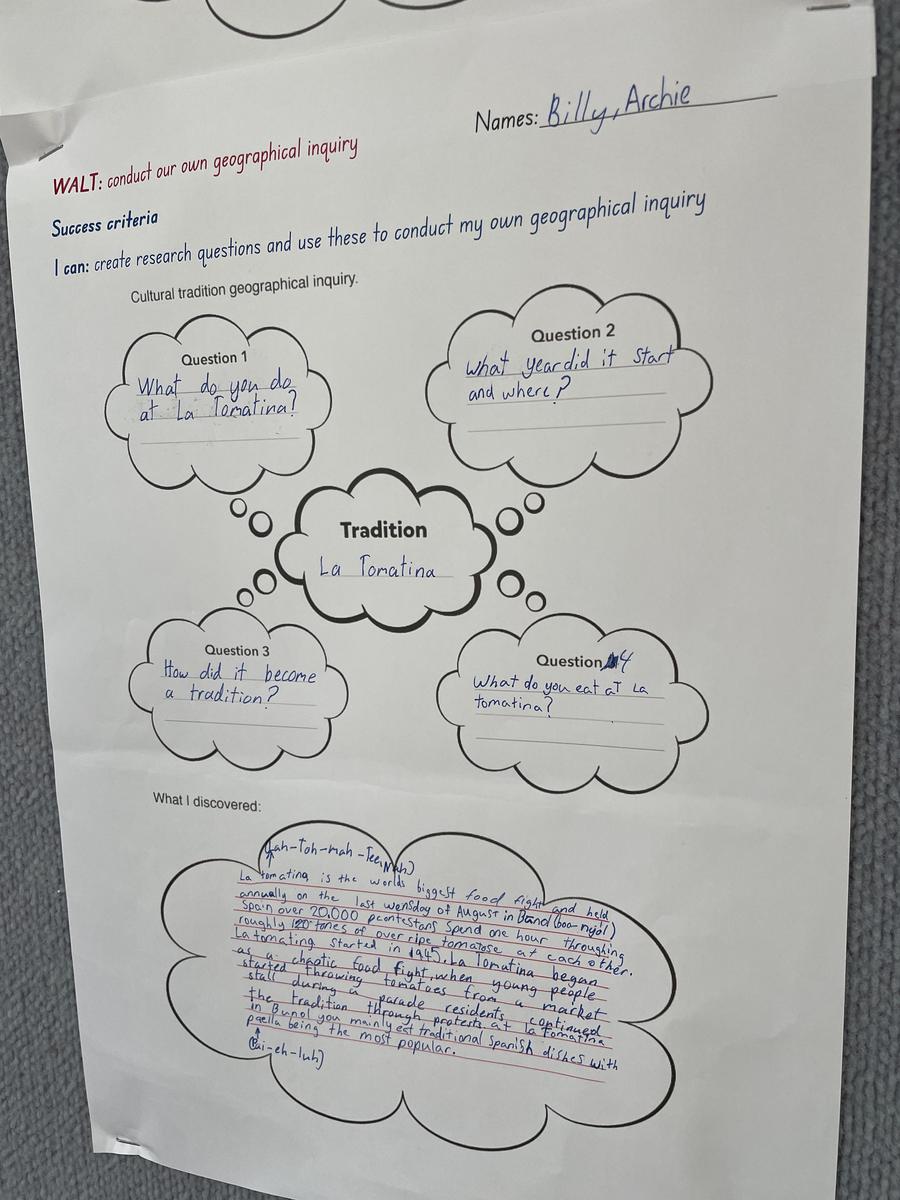 Names: Billy, Archie
WALT: conduct our own geographical inquiry
Success criteria
I can: create research questions and use these to conduct my own geographical inquiry
Cultural tradition geographical inquiry.
Question 1
What do you do
at La Tomatina?
Question 2
what year did it start
and where?
Tradition
La Tomatina
Question 3
How did it become
a tradition?
Question 4
What do you eat at La
tomatina?
What I discovered:
(Lah-Toh-mah-Tee,Nah)
La tomatina is the worlds biggest food fight and held
annually on the last wensday of August in (boo-nyol)
Spain over 20,000 pcontestans spend one hour throughing
roughly 120 tones of over ripe tomatose at each other.
La tomatina started in 1945. La Tomatina began
as a chaotic food fight, when young people
started throwing tomatoes from a market
stall during a parade residents continued
the tradition through protests at la tomatina
in Bunol you mainly eat traditional Spanish dishes with
paella being the most popular.
(Pai-eh-luh)